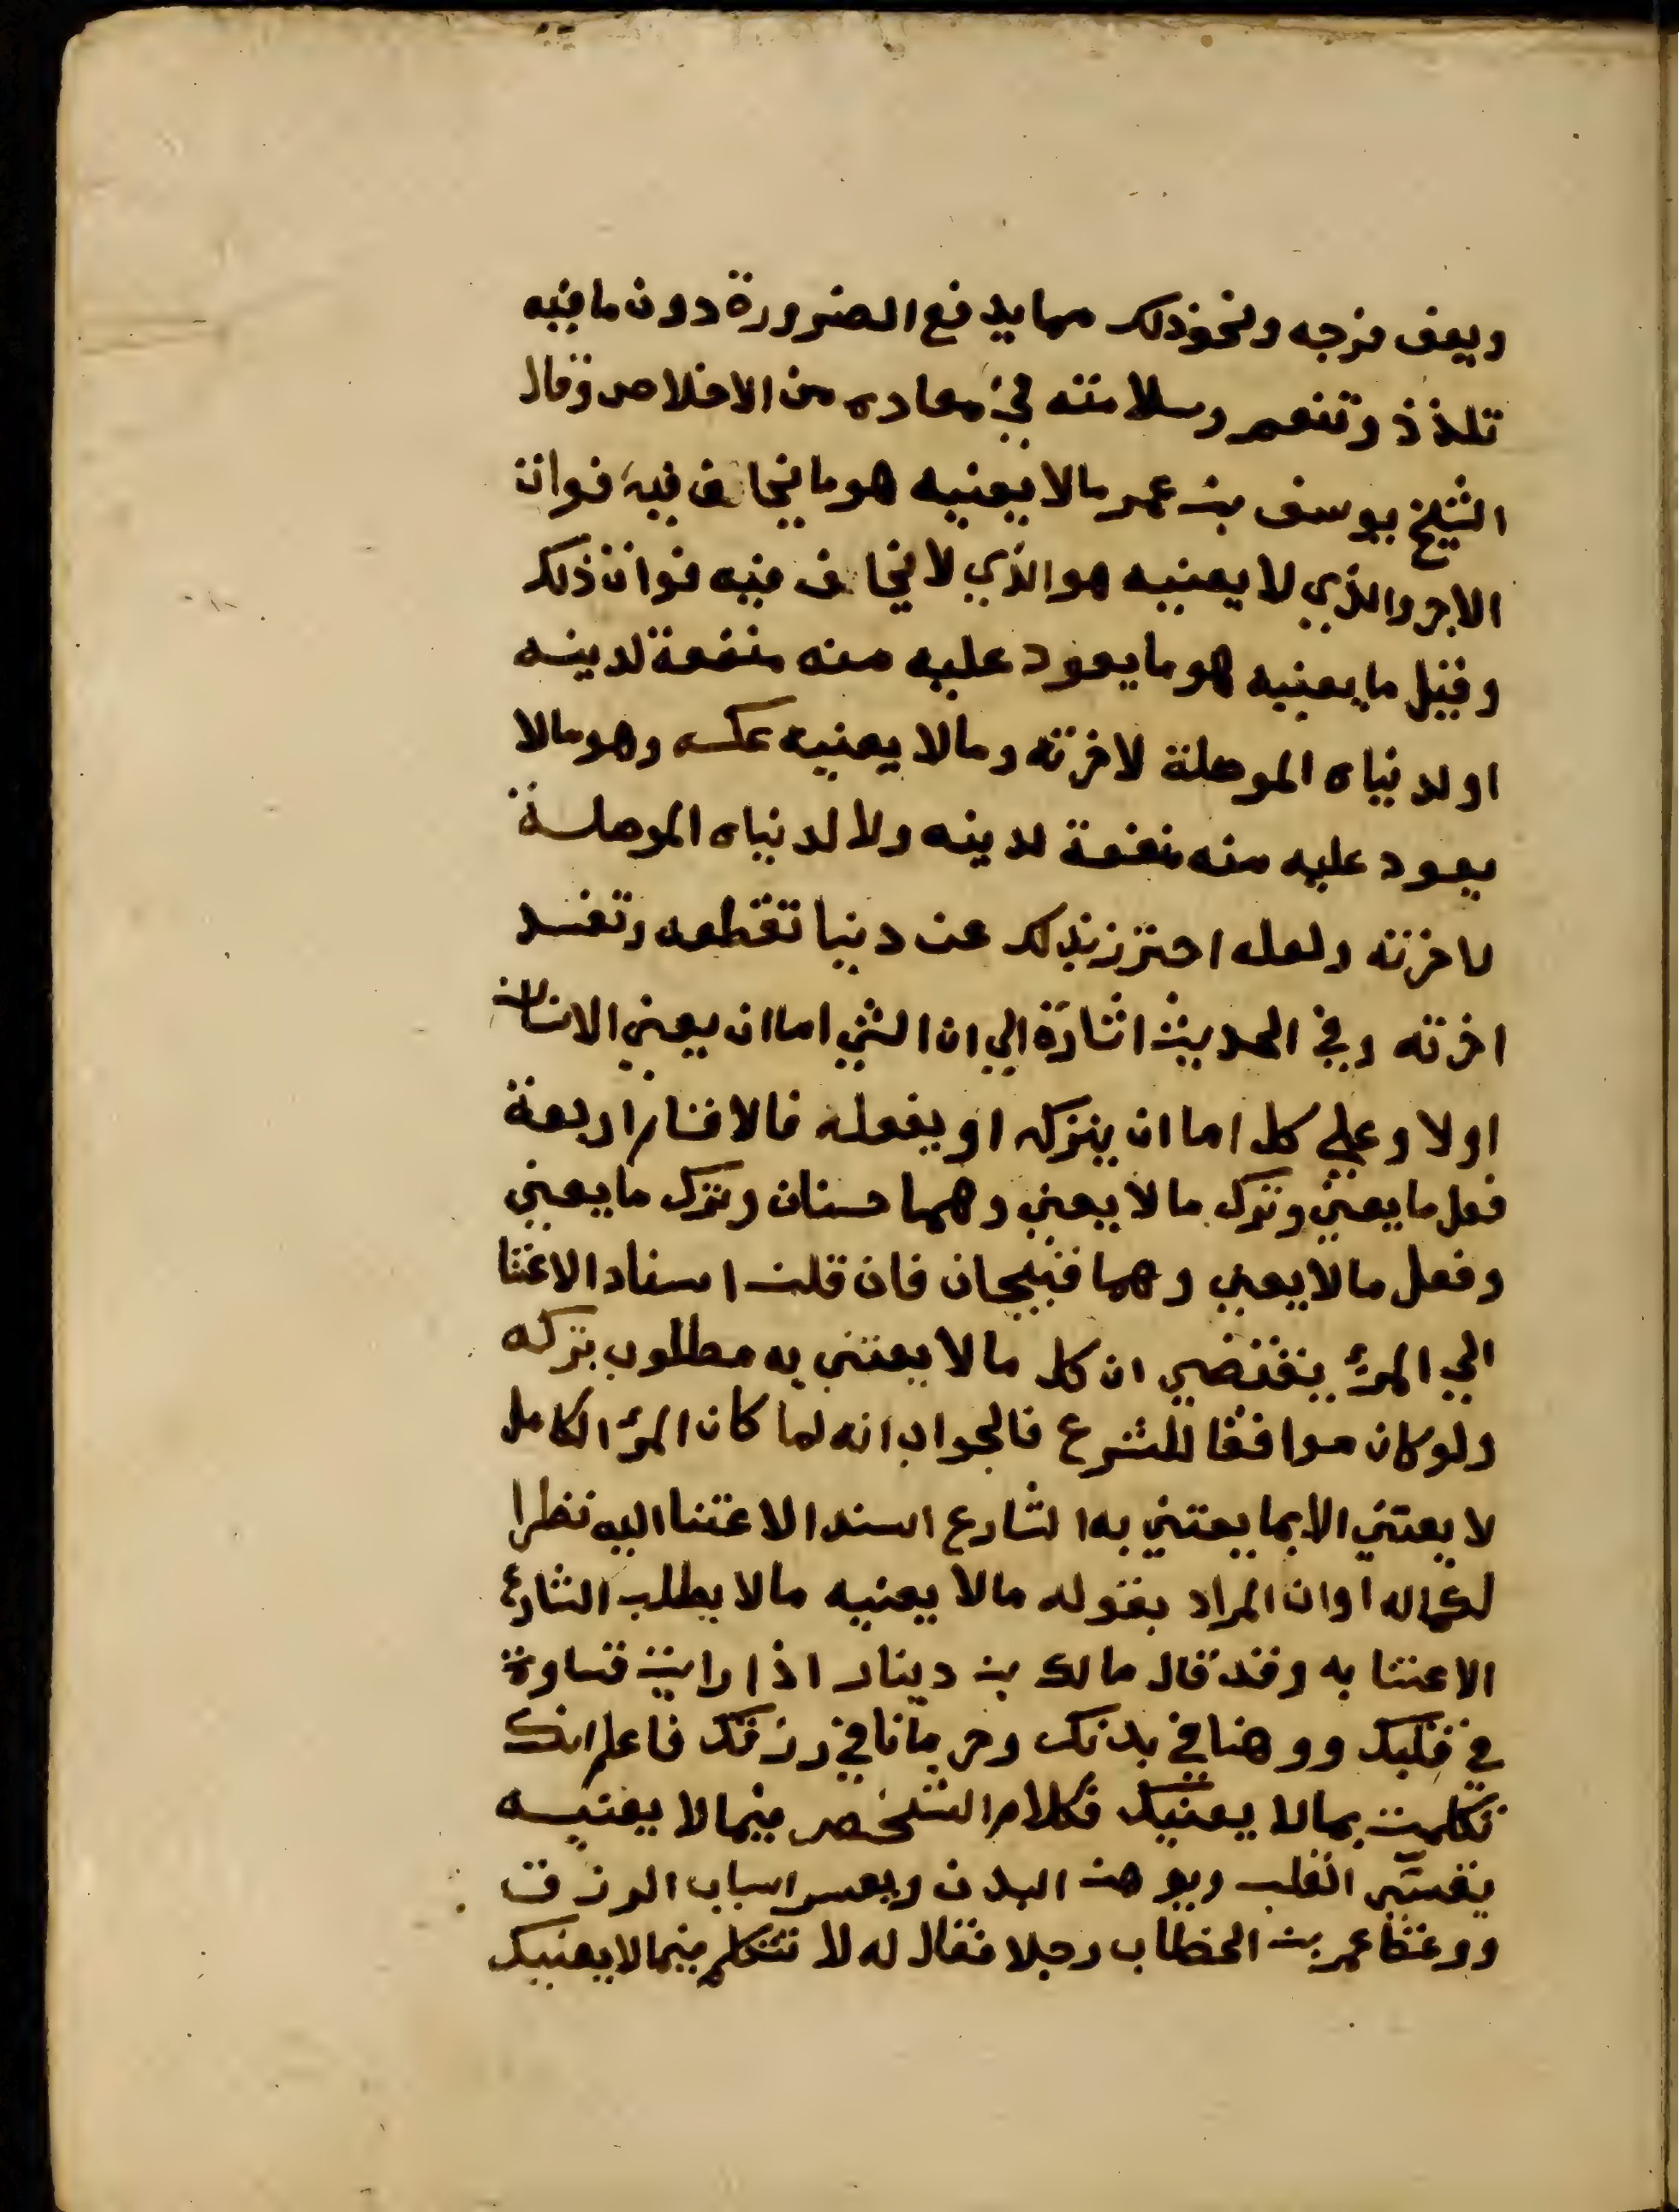 ويعف فرجه ونحو ذلك مما يدفع الضرورة دون ما فيه
تلذذ وتنعم وسلامته في معاده من الاخلاص وقال
الشيخ يوسف بن عمر مالا يعنيه هو ما يخاف فيه فوات
الاجر والذي لا يعنيه هو الذي لا يخاف فيه فوات ذلك
وقيل ما يعنيه هو ما يعود عليه منه منفعة لدينه
او لدنياه الموصلة لاخرته ومالا يعنيه عكسه وهو مالا
يعود عليه منه منفعة لدينه ولا لدنياه الموصلة
لاخرته ولعله احترز بذلك عن دنيا تقطعه وتفسد
اخرته وفي الحديث اشارة الي ان الشي اما ان يعني الانسان
اولا وعلي كل اما ان يتركه او يفعله فالاقسام اربعة
فعل ما يعني وترك مالا يعني وهما حسنان وترك ما يعني
وفعل مالا يعني وهما قبيحان فان قلت اسناد الاعتنا
الي المرء يقتضي ان كل مالا يعتني به مطلوب بتركه
ولو كان موافقا للشرع فالجواب انه لما كان المرء الكامل
لا يعتني الا بما يعتني به الشارع اسند الاعتنا اليه نظرا
لكماله او ان المراد بقوله مالا يعنيه مالا يطلب الشارع
الاعتنا به وقد قال مالك بن دينار اذا رايت قساوة
في قلبك ووهنا في بدنك وحرمانا في رزقك فاعلم انك
تكلمت بمالا يعنيك فكلام الشخص فيمالا يعنيه
يقسي القلب ويوهن البدن ويعسر اسباب الرزق
ووعظ عمر بن الخطاب رجلا فقال له لا تتكلم فيمالا يعنيك